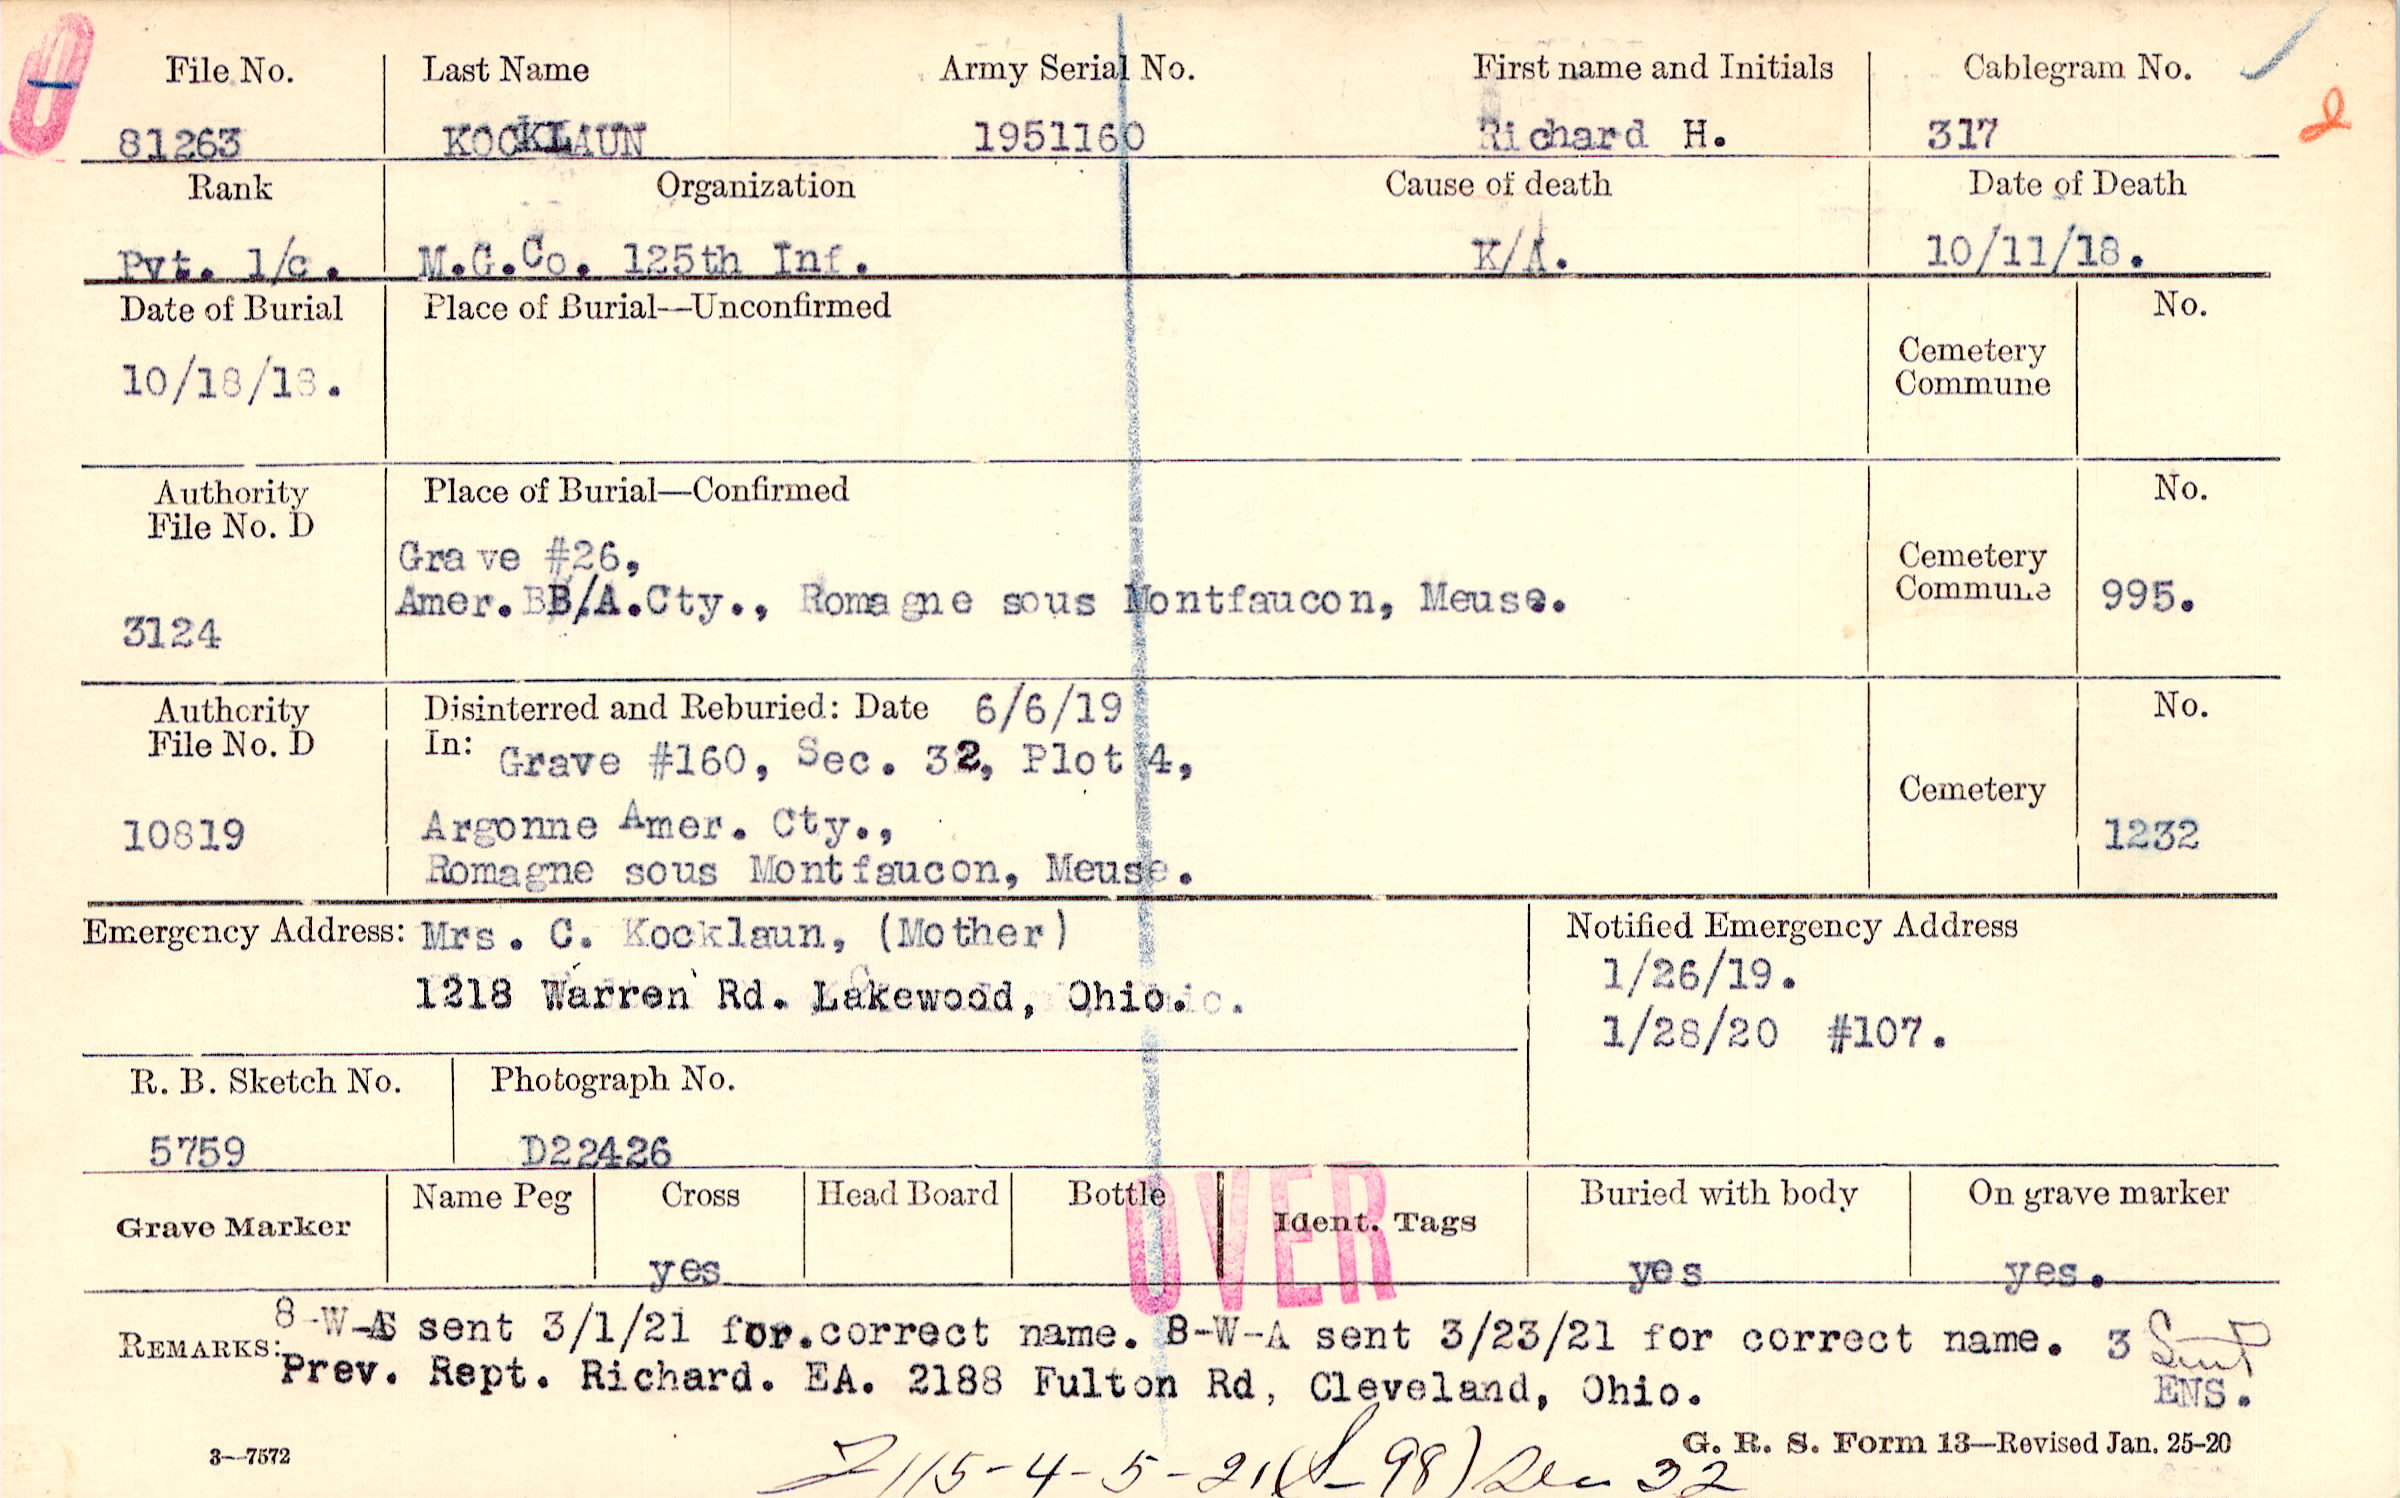 File No. Last Name Army Serial No. First name and Initials Cablegram No.
81263 KOCKLAUN 1951160 Richard H. 317 2
Rank Organization Cause of death Date of Death
Pvt. 1/c. M.G.Co. 125th Inf. K/A. 10/11/18.
Date of Burial Place of Burial—Unconfirmed No.
10/18/18. Cemetery
Commune
Authority Place of Burial—Confirmed No.
File No. D
Grave #26, Cemetery
3124 Amer.BB/A.Cty., Romagne sous Montfaucon, Meuse. Commune 995.
Authority Disinterred and Reburied: Date 6/6/19 No.
File No. D In: Grave #160, Sec. 32, Plot 4,
Cemetery
10819 Argonne Amer. Cty., 1232
Romagne sous Montfaucon, Meuse.
Emergency Address: Mrs. C. Kocklaun, (Mother) Notified Emergency Address
1/26/19.
1218 Warren Rd. Lakewood, Ohio.
1/28/20 #107.
R. B. Sketch No. Photograph No.
5759 D22426
OVER
Grave Marker Name Peg Cross Head Board Bottle Ident. Tags Buried with body On grave marker
yes yes yes.
REMARKS: 8-W-A sent 3/1/21 for.correct name. 8-W-A sent 3/23/21 for correct name. 3 Sent
Prev. Rept. Richard. EA. 2188 Fulton Rd, Cleveland, Ohio. ENS.
3—7572 G. R. S. Form 13—Revised Jan. 25-20
115-4-5-21 98) Sec 32